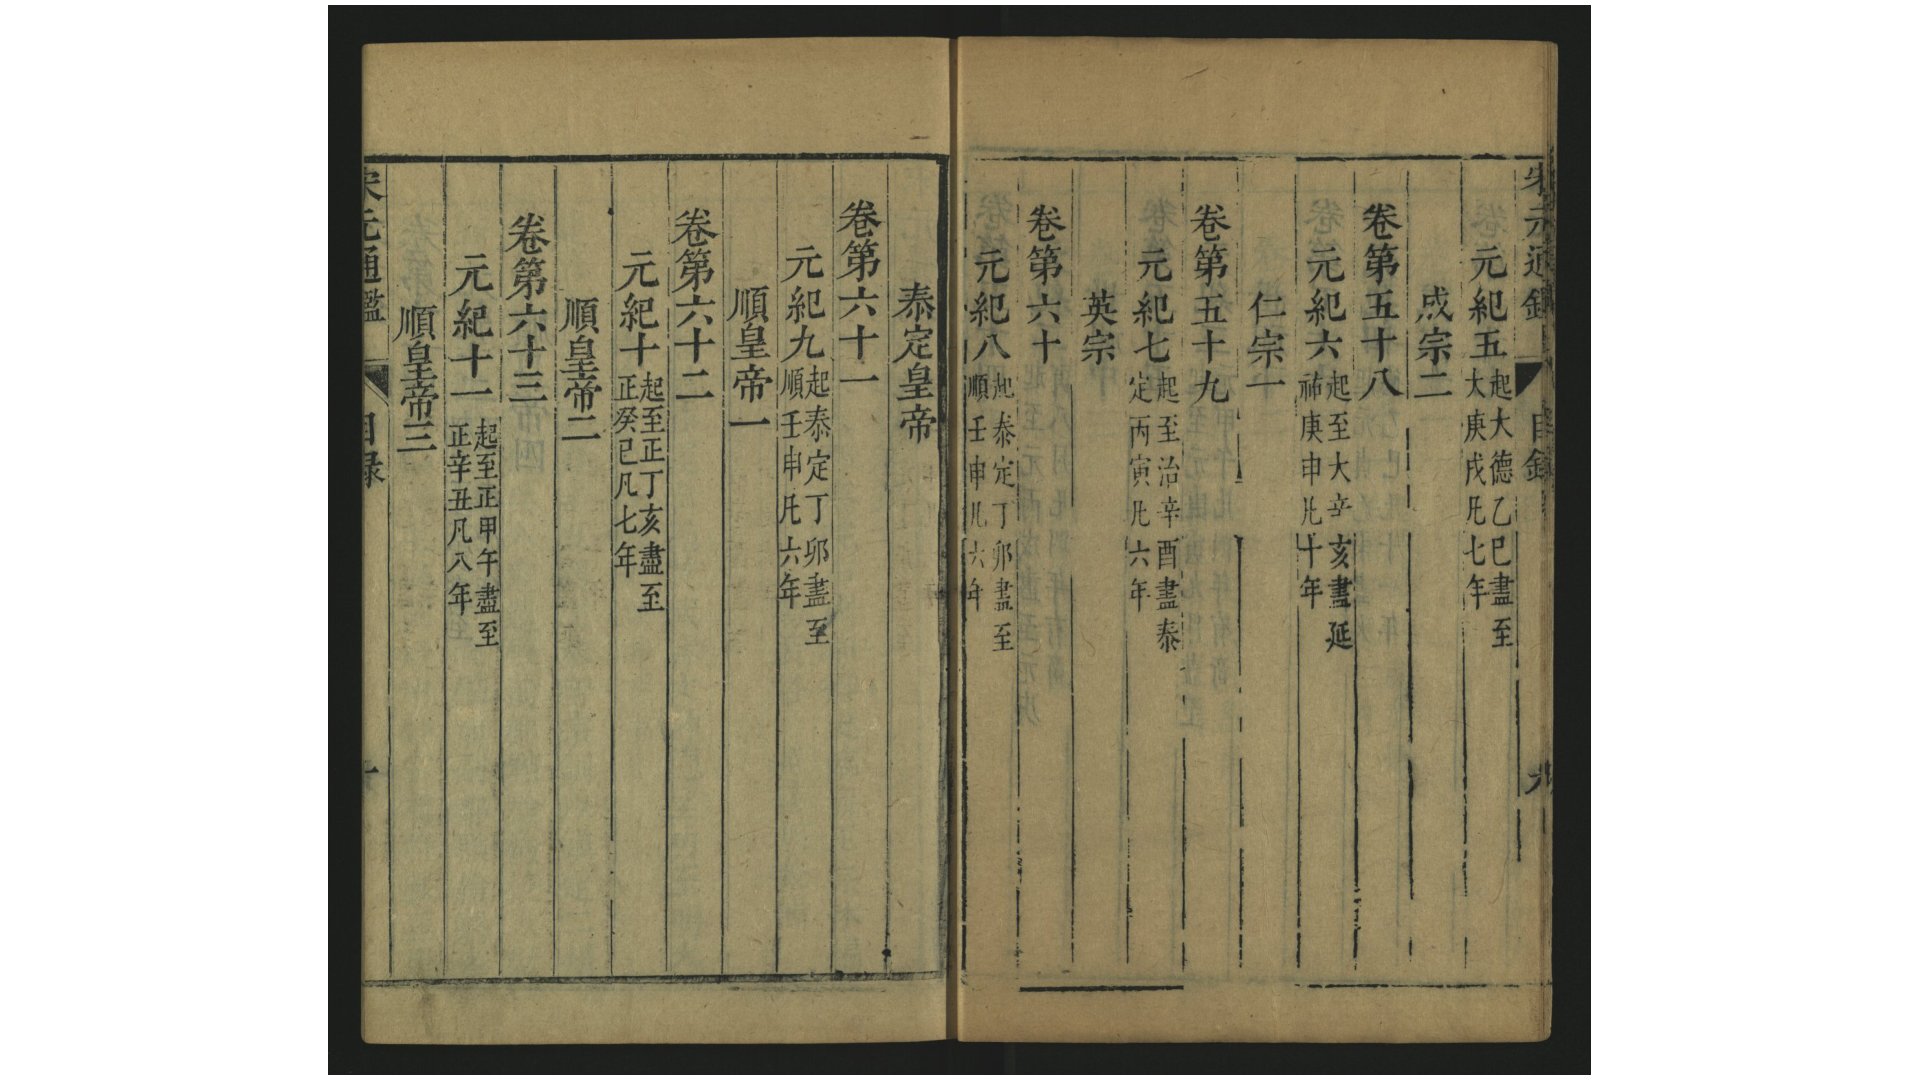 宋元通鑑 目錄 九
元紀五 起大德乙巳盡至
大庚戌凡七年
成宗二
卷第五十八
元紀六 起至大辛亥盡延
祐庚申凡十年
仁宗一
卷第五十九
元紀七 起至治辛酉盡泰
定丙寅凡六年
英宗
卷第六十
元紀八 起泰定丁卯盡至
順壬申凡六年
泰定皇帝
卷第六十一
元紀九 起泰定丁卯盡至
順壬申凡六年
順皇帝一
卷第六十二
元紀十 起至正丁亥盡至
正癸巳凡七年
順皇帝二
卷第六十三
元紀十一 起至正甲午盡至
正辛丑凡八年
順皇帝三
宋元通鑑 目錄 十